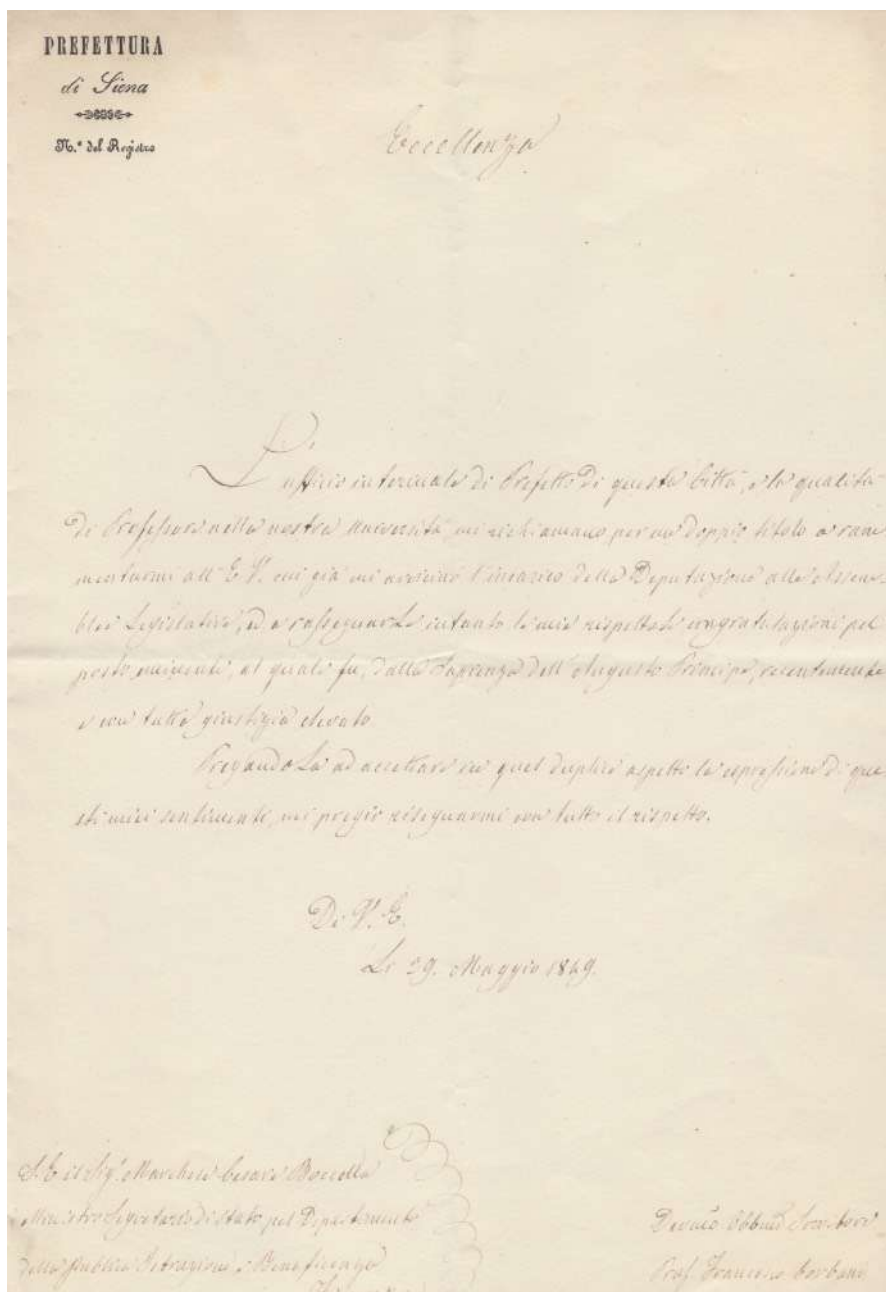 PREFETTURA
di Siena
N.º del Registro
Eccellenza
L'ufficio interinale di Prefetto di questa Città, e la qualità
di Professore nella nostra Università mi richiamano per un doppio titolo a ram
mentarmi all' E. V. cui già mi avvicinò l'incarico della Deputazione alle Assem-
blee Legislative, ed a rassegnarLe intanto le mie rispettose congratulazioni pel
posto eminente, al quale fu, dalla Sapienza dell' Augusto Principe, recentemente
e con tutta giustizia elevato.
PregandoLa ad accettare in quel duplice aspetto la espressione di que
sti miei sentimenti, mi pregio risegnarmi con tutto il rispetto.
Di V. E.
Li 29. Maggio 1849.
S. E. il Sig.r Marchese Cesare Boccella
Ministro Segretario di Stato pel Dipartimento
della Pubblica Istruzione e Beneficenza
Prof. Francesco Corbani